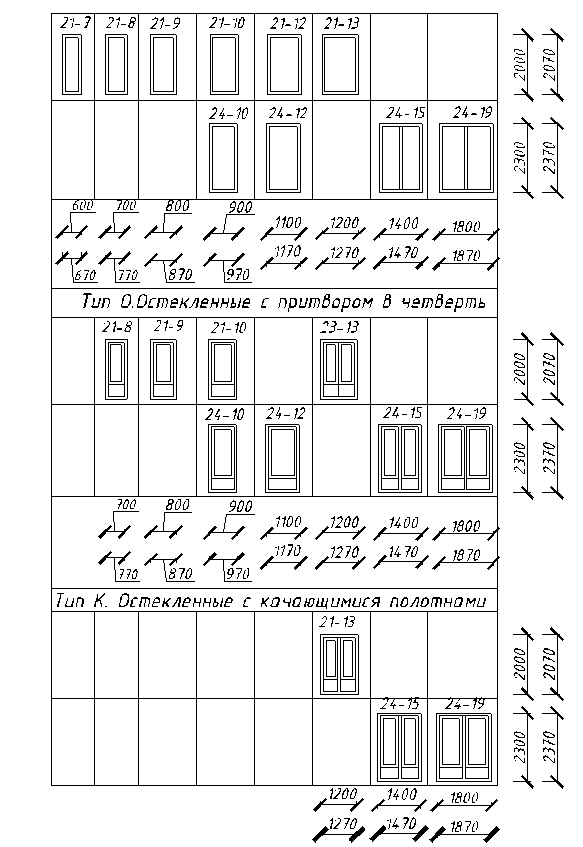 21-7 21-8 21-9 21-10 21-12 21-13
2000 2070
24-10 24-12 24-15 24-19
2300 2370
600 700 800 900 1100 1200 1400 1800
670 770 870 970 1170 1270 1470 1870
Тип О.Остекленные с притвором в четверть
21-8 21-9 21-10 23-13
2000 2070
24-10 24-12 24-15 24-19
2300 2370
700 800 900 1100 1200 1400 1800
770 870 970 1170 1270 1470 1870
Тип К. Остекленные с качающимися полотнами
21-13
2000 2070
24-15 24-19
2300 2370
1200 1400 1800
1270 1470 1870